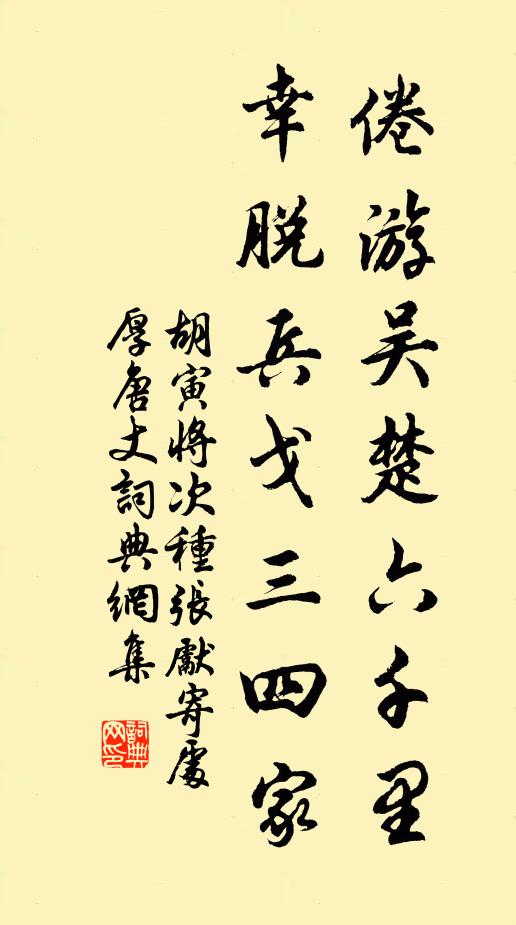 倦游吴楚六千里
幸脱兵戈三四家
胡寅将次種張獻寄處
厚唐丈詞典網集
詞典
网印